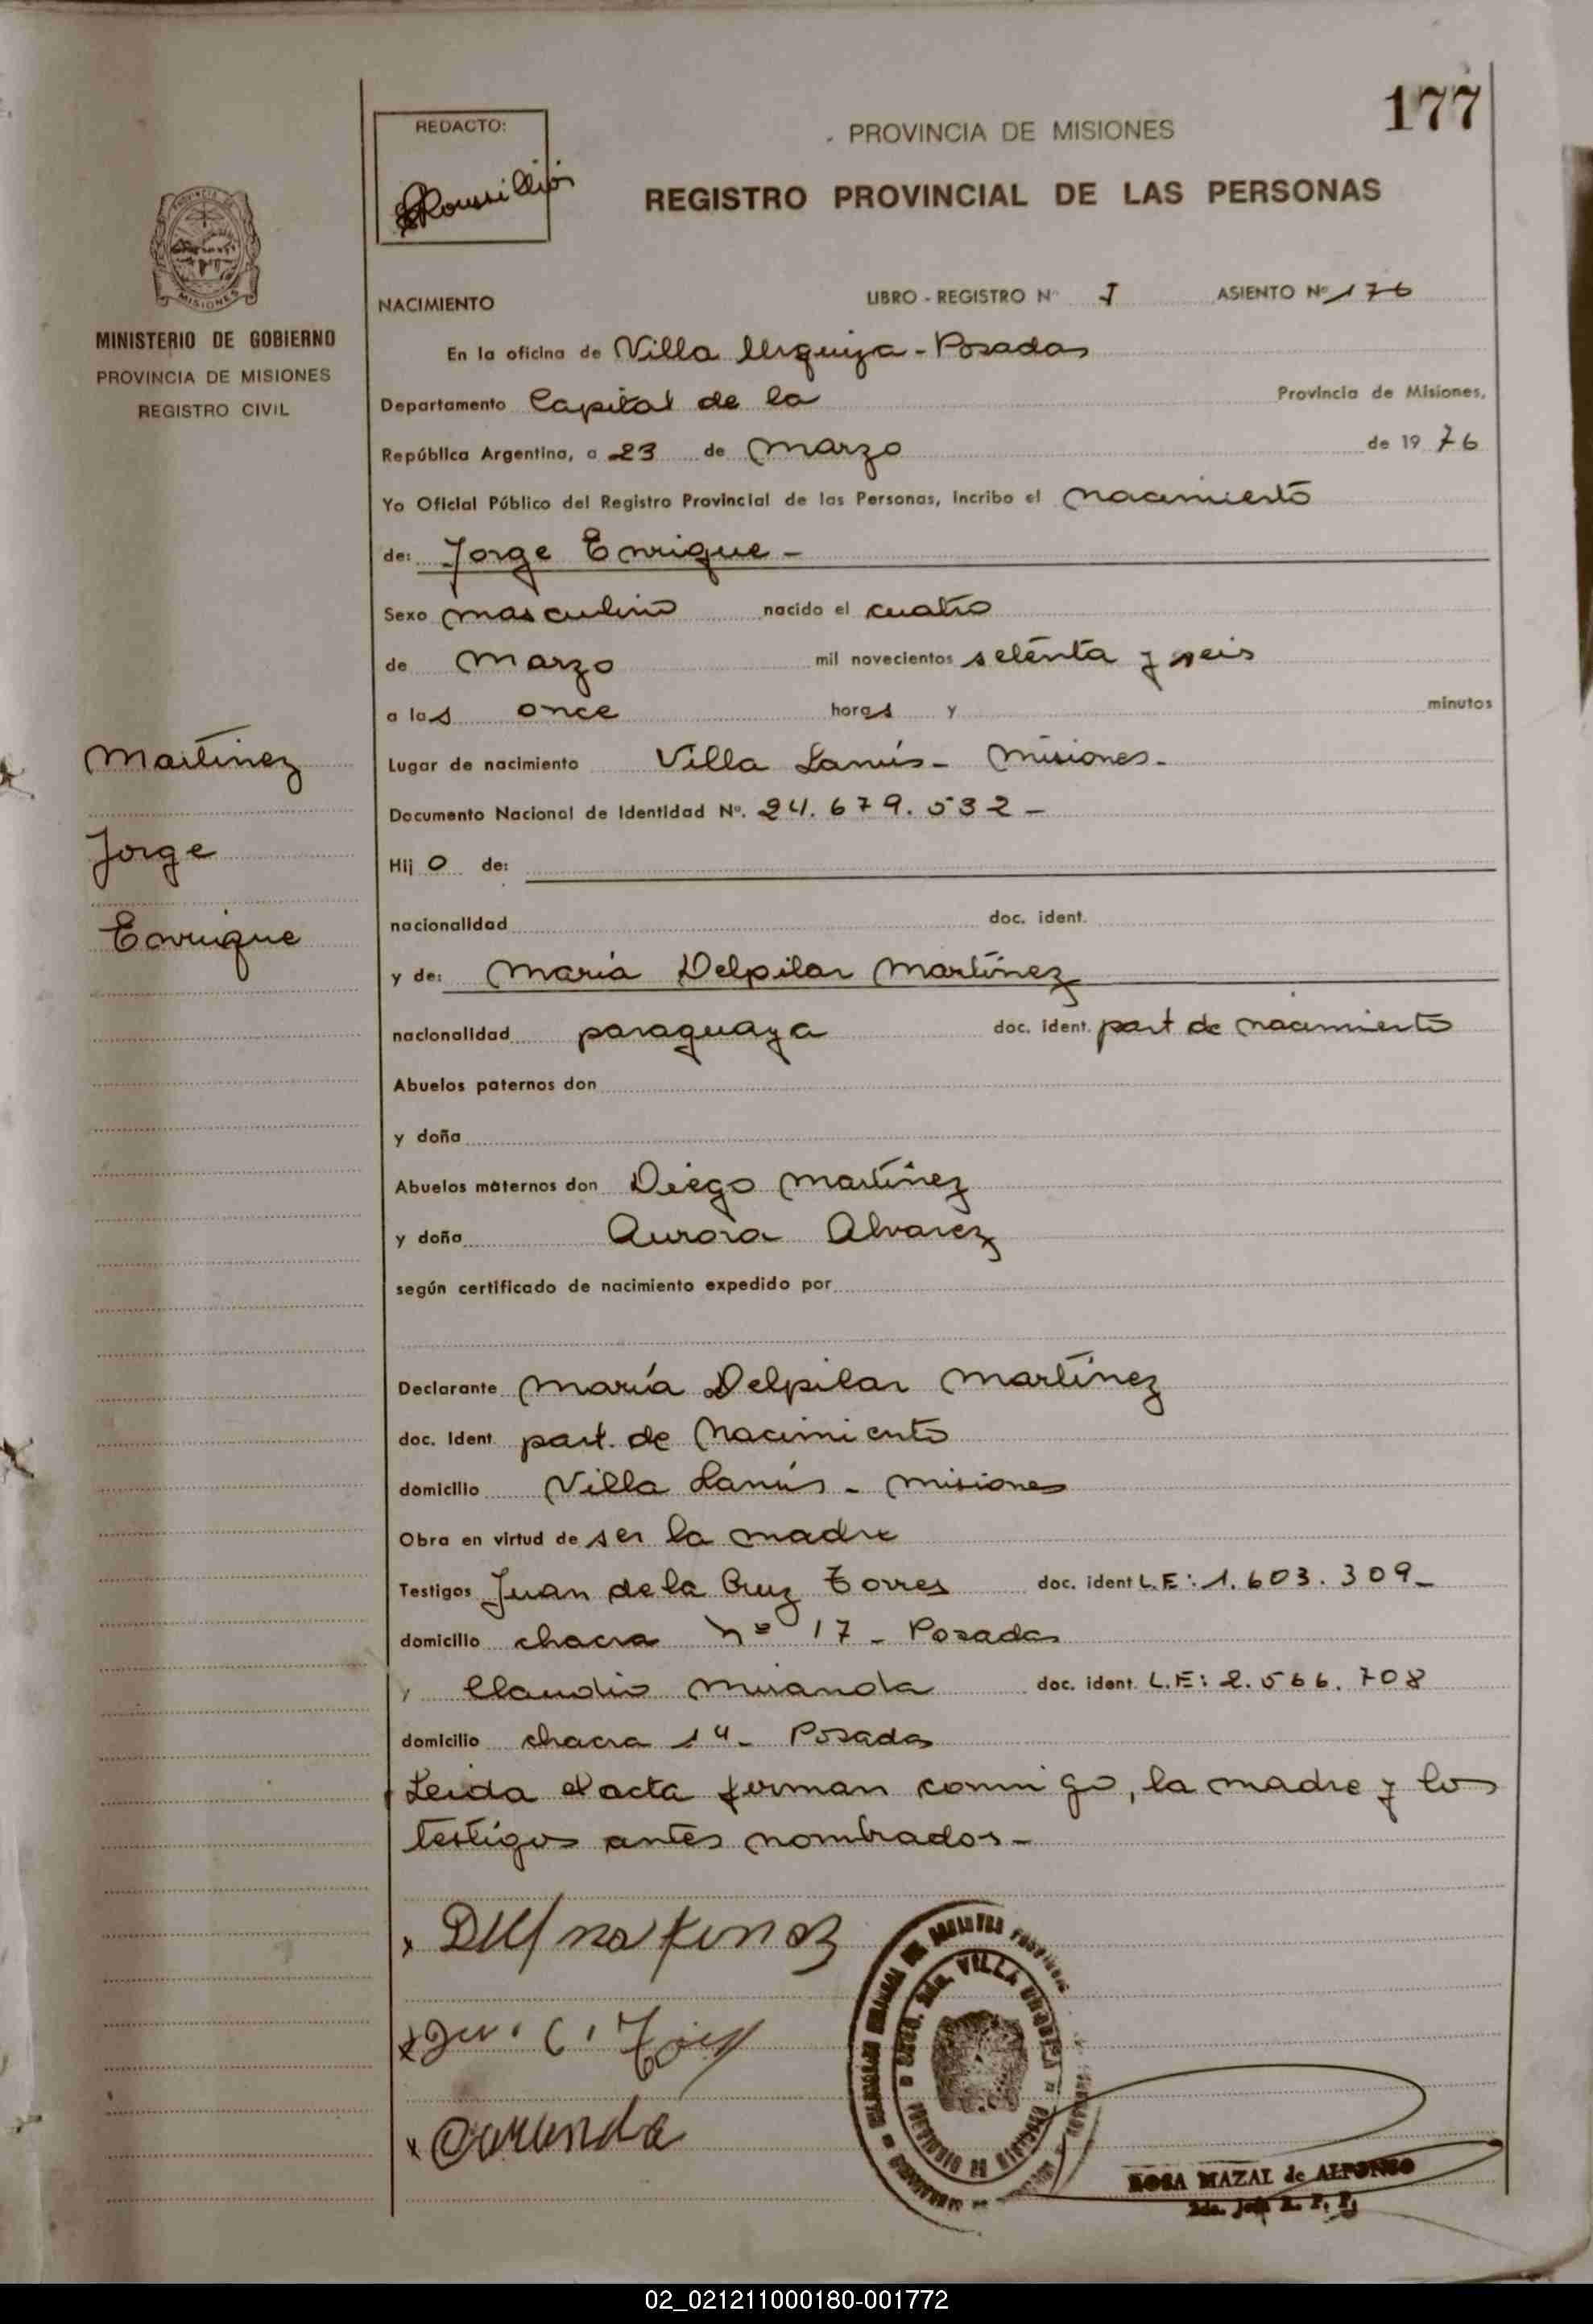 177
REDACTO:
PROVINCIA DE MISIONES
REGISTRO PROVINCIAL DE LAS PERSONAS
MISIONES
MINISTERIO DE GOBIERNO
PROVINCIA DE MISIONES
REGISTRO CIVIL
NACIMIENTO LIBRO - REGISTRO Nº I ASIENTO Nº 176
En la oficina de Villa Urquiza - Posadas
Departamento Capital de la Provincia de Misiones,
República Argentina, a 23 de Marzo de 19 76
Yo Oficial Público del Registro Provincial de las Personas, incribo el nacimiento
de: Jorge Enrique -
Sexo masculino nacido el cuatro
de Marzo mil novecientos setenta y seis
a las once horas y minutos
Martínez
Jorge
Enrique
Lugar de nacimiento Villa Lanús - Misiones -
Documento Nacional de Identidad Nº. 24.679.532 -
Hij o de:
nacionalidad doc. ident.
y de: María Delpilar Martínez
nacionalidad paraguaya doc. ident. part de nacimiento
Abuelos paternos don
y doña
Abuelos maternos don Diego Martínez
y doña Aurora Alvarez
según certificado de nacimiento expedido por
Declarante María Delpilar Martínez
doc. Ident. part. de Nacimiento
domicilio Villa Lanús - Misiones
Obra en virtud de ser la madre
Testigos Juan de la Cruz Torres doc. ident L.E: 1.603.309 -
domicilio chacra nº 17 - Posadas
y Claudio Miranda doc. ident. L.E: 2.566.708
domicilio chacra 14 - Posadas
Leida el acta firman conmigo, la madre y los
testigos antes nombrados -
VILLA URQUIZA
ROSA MAZAL de ALFONSO
02_021211000180-001772